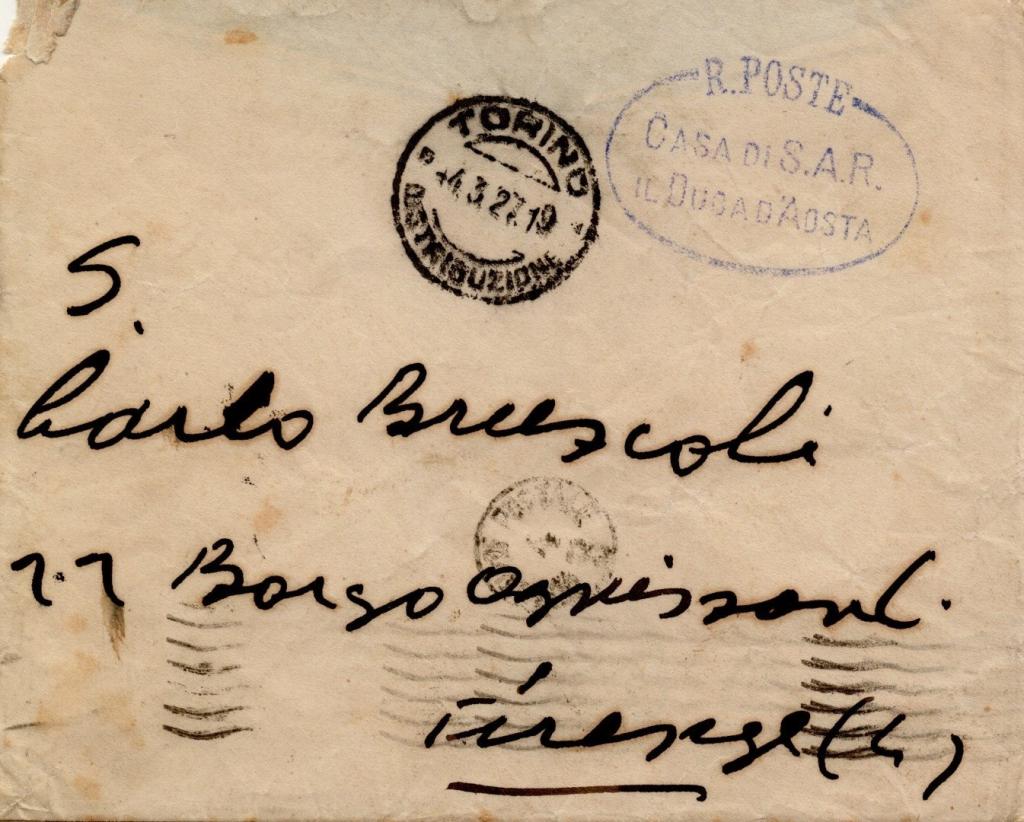 R. POSTE
CASA DI S.A.R.
IL DUCA D'AOSTA
TORINO
4.3.27.19
DISTRIBUZIONE
S.
Carlo
77 Borgo Ognissanti.
Firenze